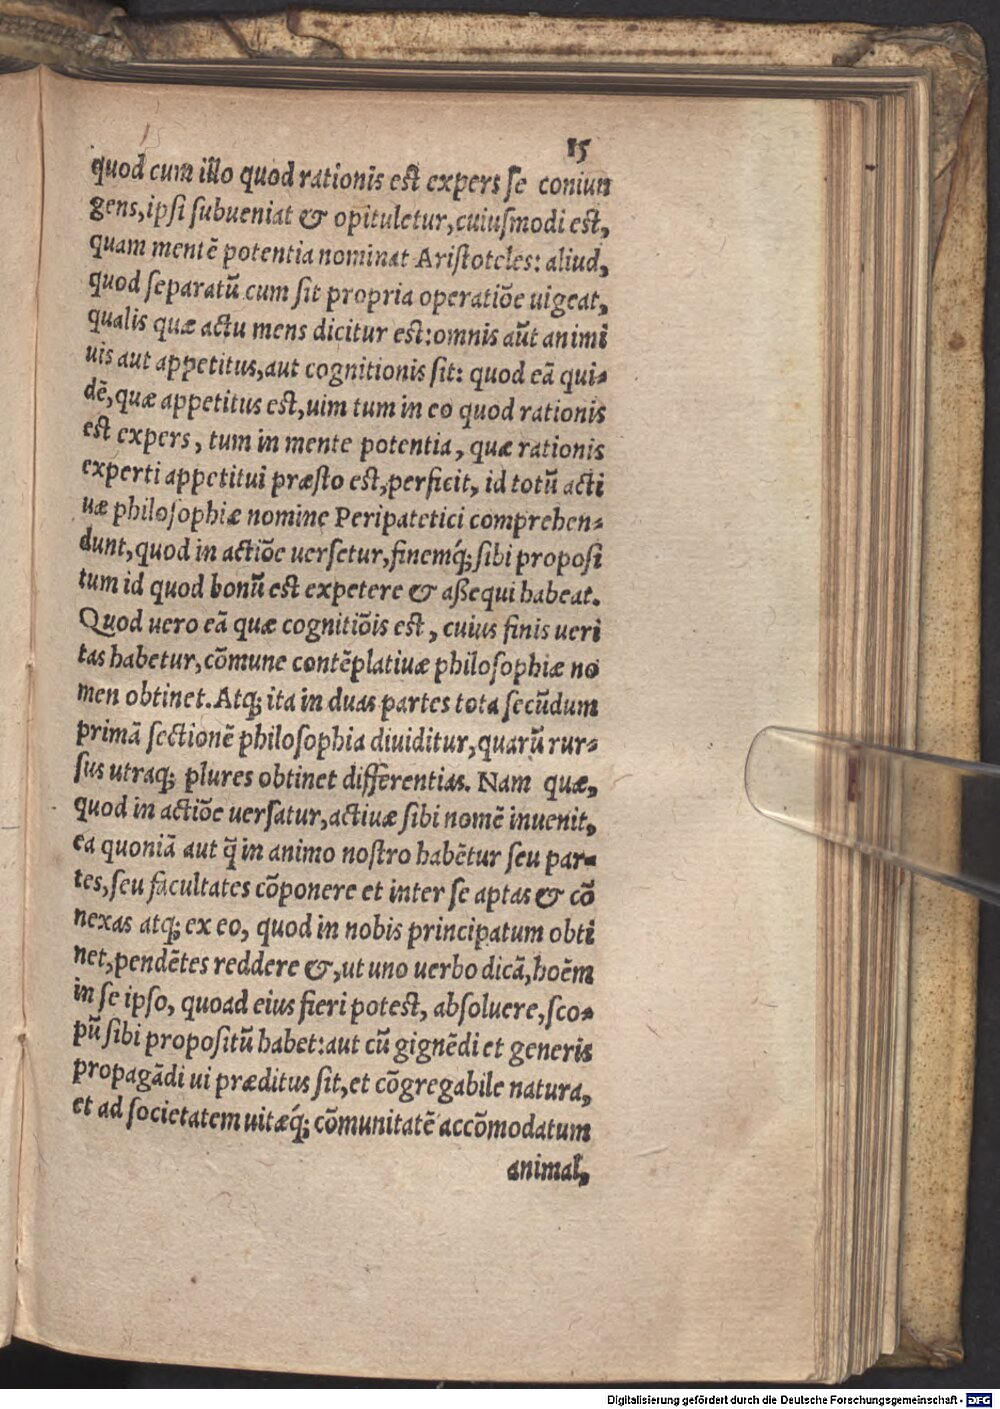 15
quod cum illo quod rationis est expers se coniun
gens, ipsi subueniat & opituletur, cuiusmodi est,
quam mentē potentia nominat Aristoteles: aliud,
quod separatū cum sit propria operatiōe uigeat,
qualis quæ actu mens dicitur est: omnis aūt animi
uis aut appetitus, aut cognitionis sit: quod eā qui-
dē, quæ appetitus est, uim tum in eo quod rationis
est expers, tum in mente potentia, quæ rationis
experti appetitui præsto est, perficit, id totū acti
uæ philosophiæ nomine Peripatetici comprehen-
dunt, quod in actiōe uersetur, finemq́; sibi proposi
tum id quod bonū est expetere & aßequi habeat.
Quod uero eā quæ cognitiōis est, cuius finis ueri
tas habetur, cōmune contēplatiuæ philosophiæ no
men obtinet. Atq; ita in duas partes tota secūdum
primā sectionē philosophia diuiditur, quarū rur-
sus utraq; plures obtinet differentias. Nam quæ,
quod in actiōe uersatur, actiuæ sibi nomē inuenit,
ea quoniā aut q̄ in animo nostro habētur seu par-
tes, seu facultates cōponere et inter se aptas & cō
nexas atq; ex eo, quod in nobis principatum obti
net, pendētes reddere &, ut uno uerbo dicā, hoēm
in se ipso, quoad eius fieri potest, absoluere, sco-
pū sibi propositū habet: aut cū gignēdi et generis
propagādi ui præditus sit, et cōgregabile natura,
et ad societatem uitæq́; cōmunitatē accōmodatum
animal,
Digitalisierung gefördert durch die Deutsche Forschungsgemeinschaft - DFG